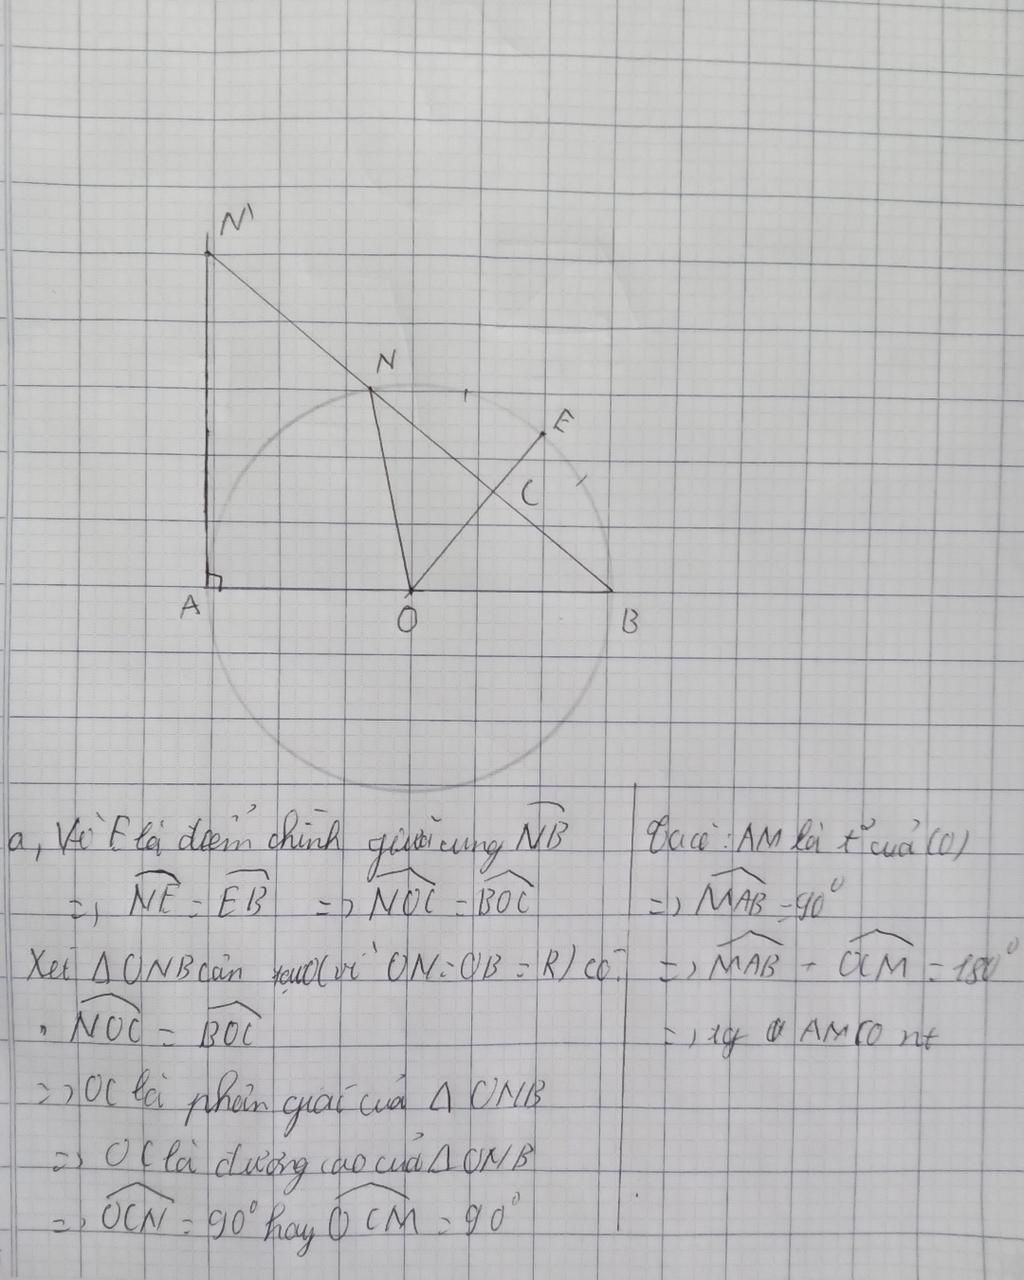 N'
N
E
C
A
O
B
a, Vì E là điểm chính giữa cung NB
=> NE = EB => NOC = BOC
Xét ΔONB cân tại O (vì ON = OB = R) có:
• NOC = BOC
=> OC là phân giác của ΔONB
=> OC là đường cao của ΔONB
=> OCN = 90° hay OCM = 90°
Ta có: AM là t² của (O)
=> MAB = 90°
=> MAB + OCM = 180°
=> tg AMCO nt